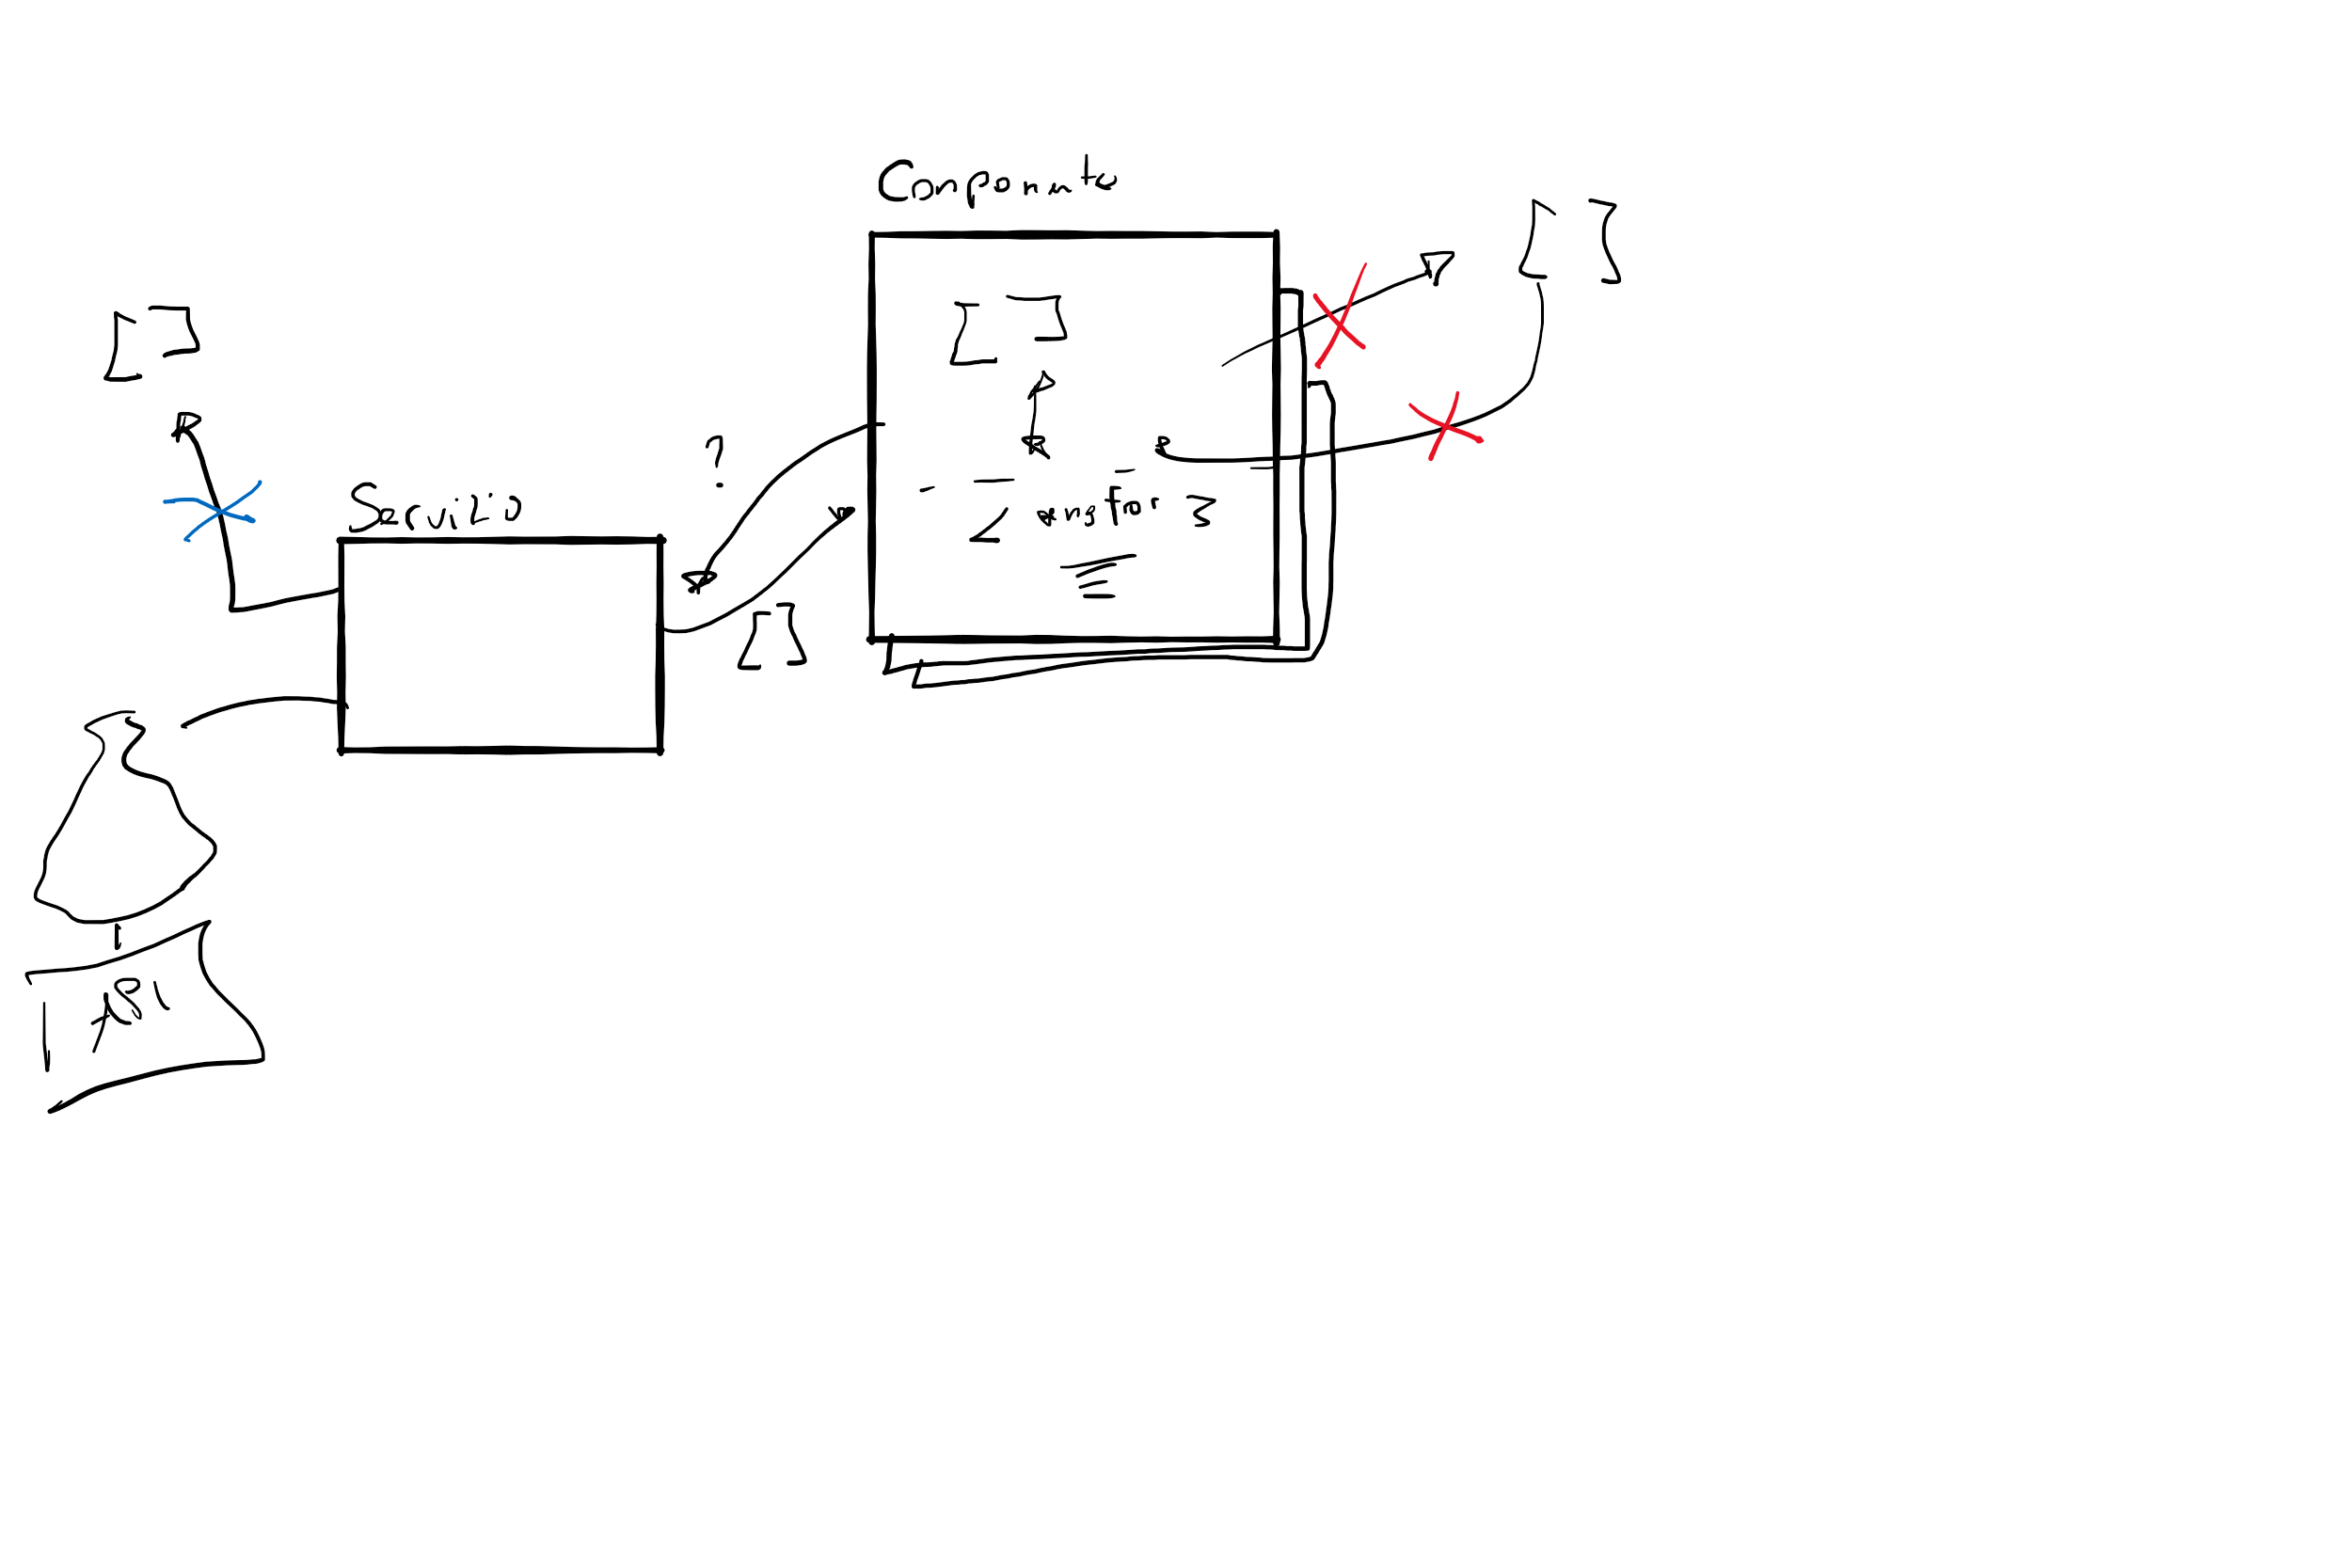 Componente
[ ]
[ ]
[ ]
?
Servizio
*ngfor
[ ]
API